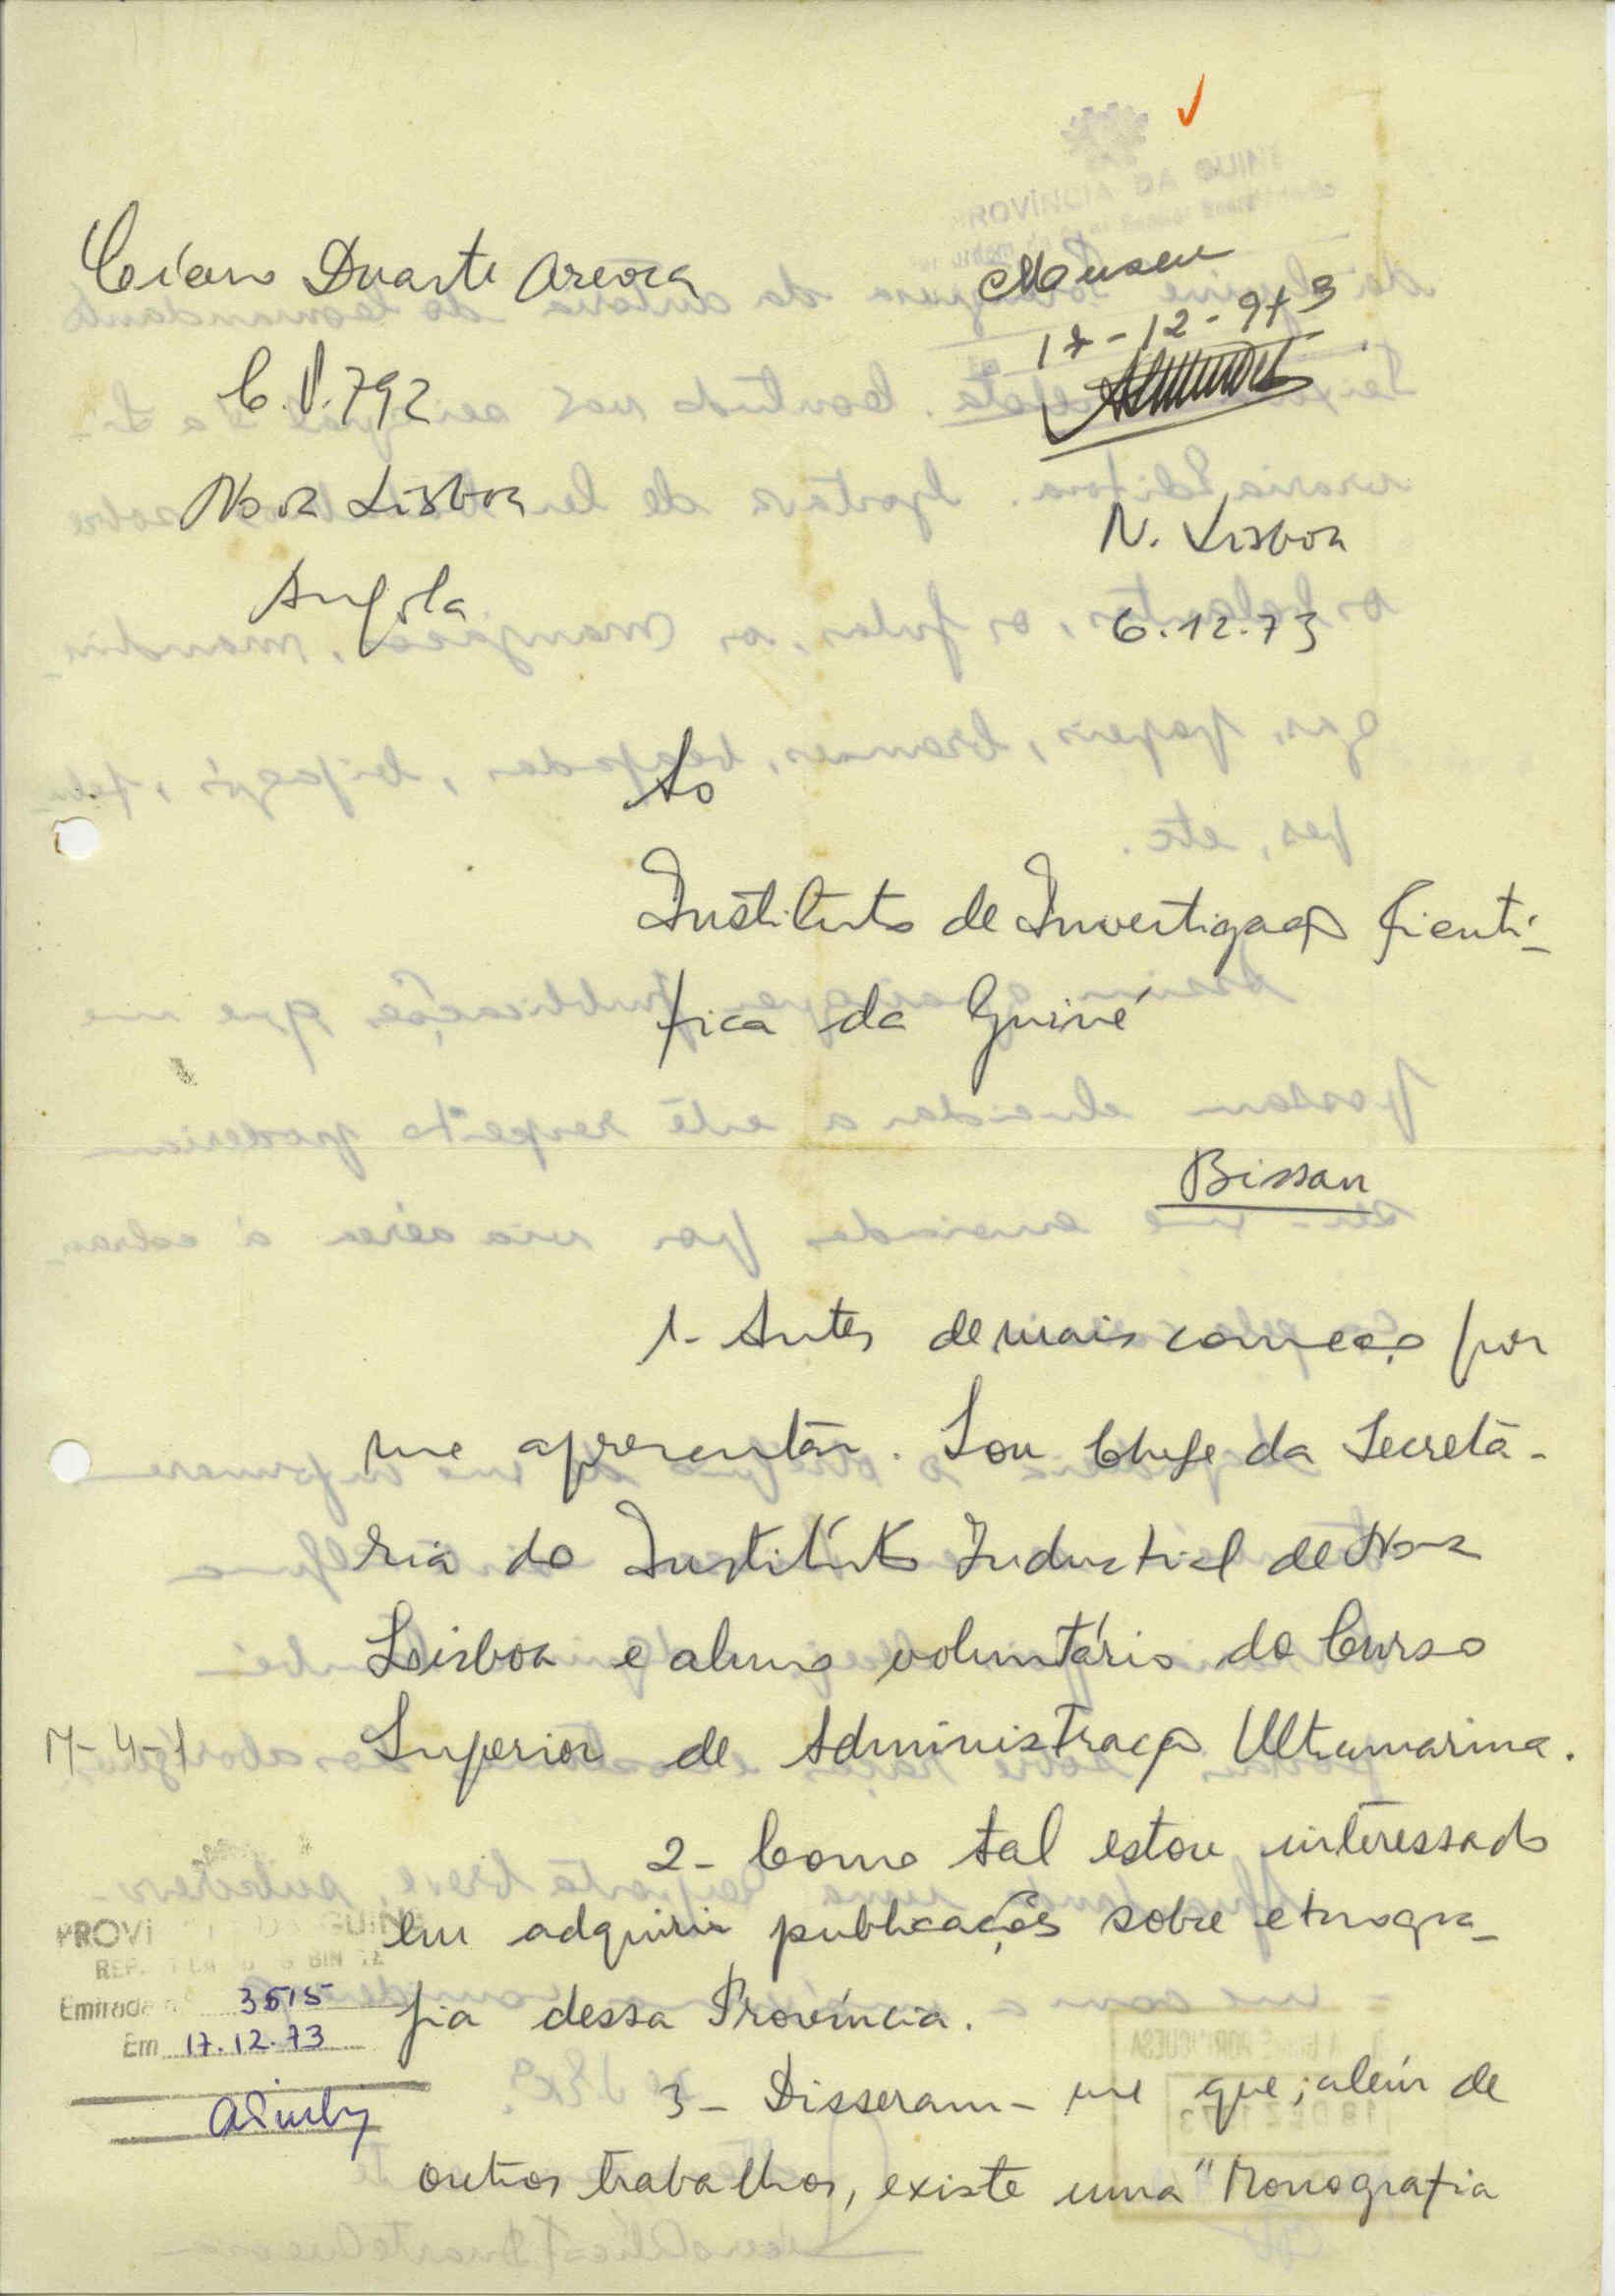 Cícero Duarte
C.P. 792
Nova Lisboa
Angola
Museu
17-12-973
N. Lisboa
6.12.73
Ao
Instituto de Investigação Cientí-
fica da Guiné
Bissau
1- Antes de mais começo por
me apresentar. Sou Chefe da Secretá-
ria do Instituto Industrial de Nova
Lisboa e aluno voluntário do Curso
M-4-1
Superior de Administração Ultramarina.
2- Como tal estou interessado
em adquirir publicações sobre etnogra-
fia dessa Província.
PROVÍNCIA DA GUINÉ
Entrada nº 3515
Em 17.12.73
3- Disseram-me que, além de
outros trabalhos, existe uma "Monografia